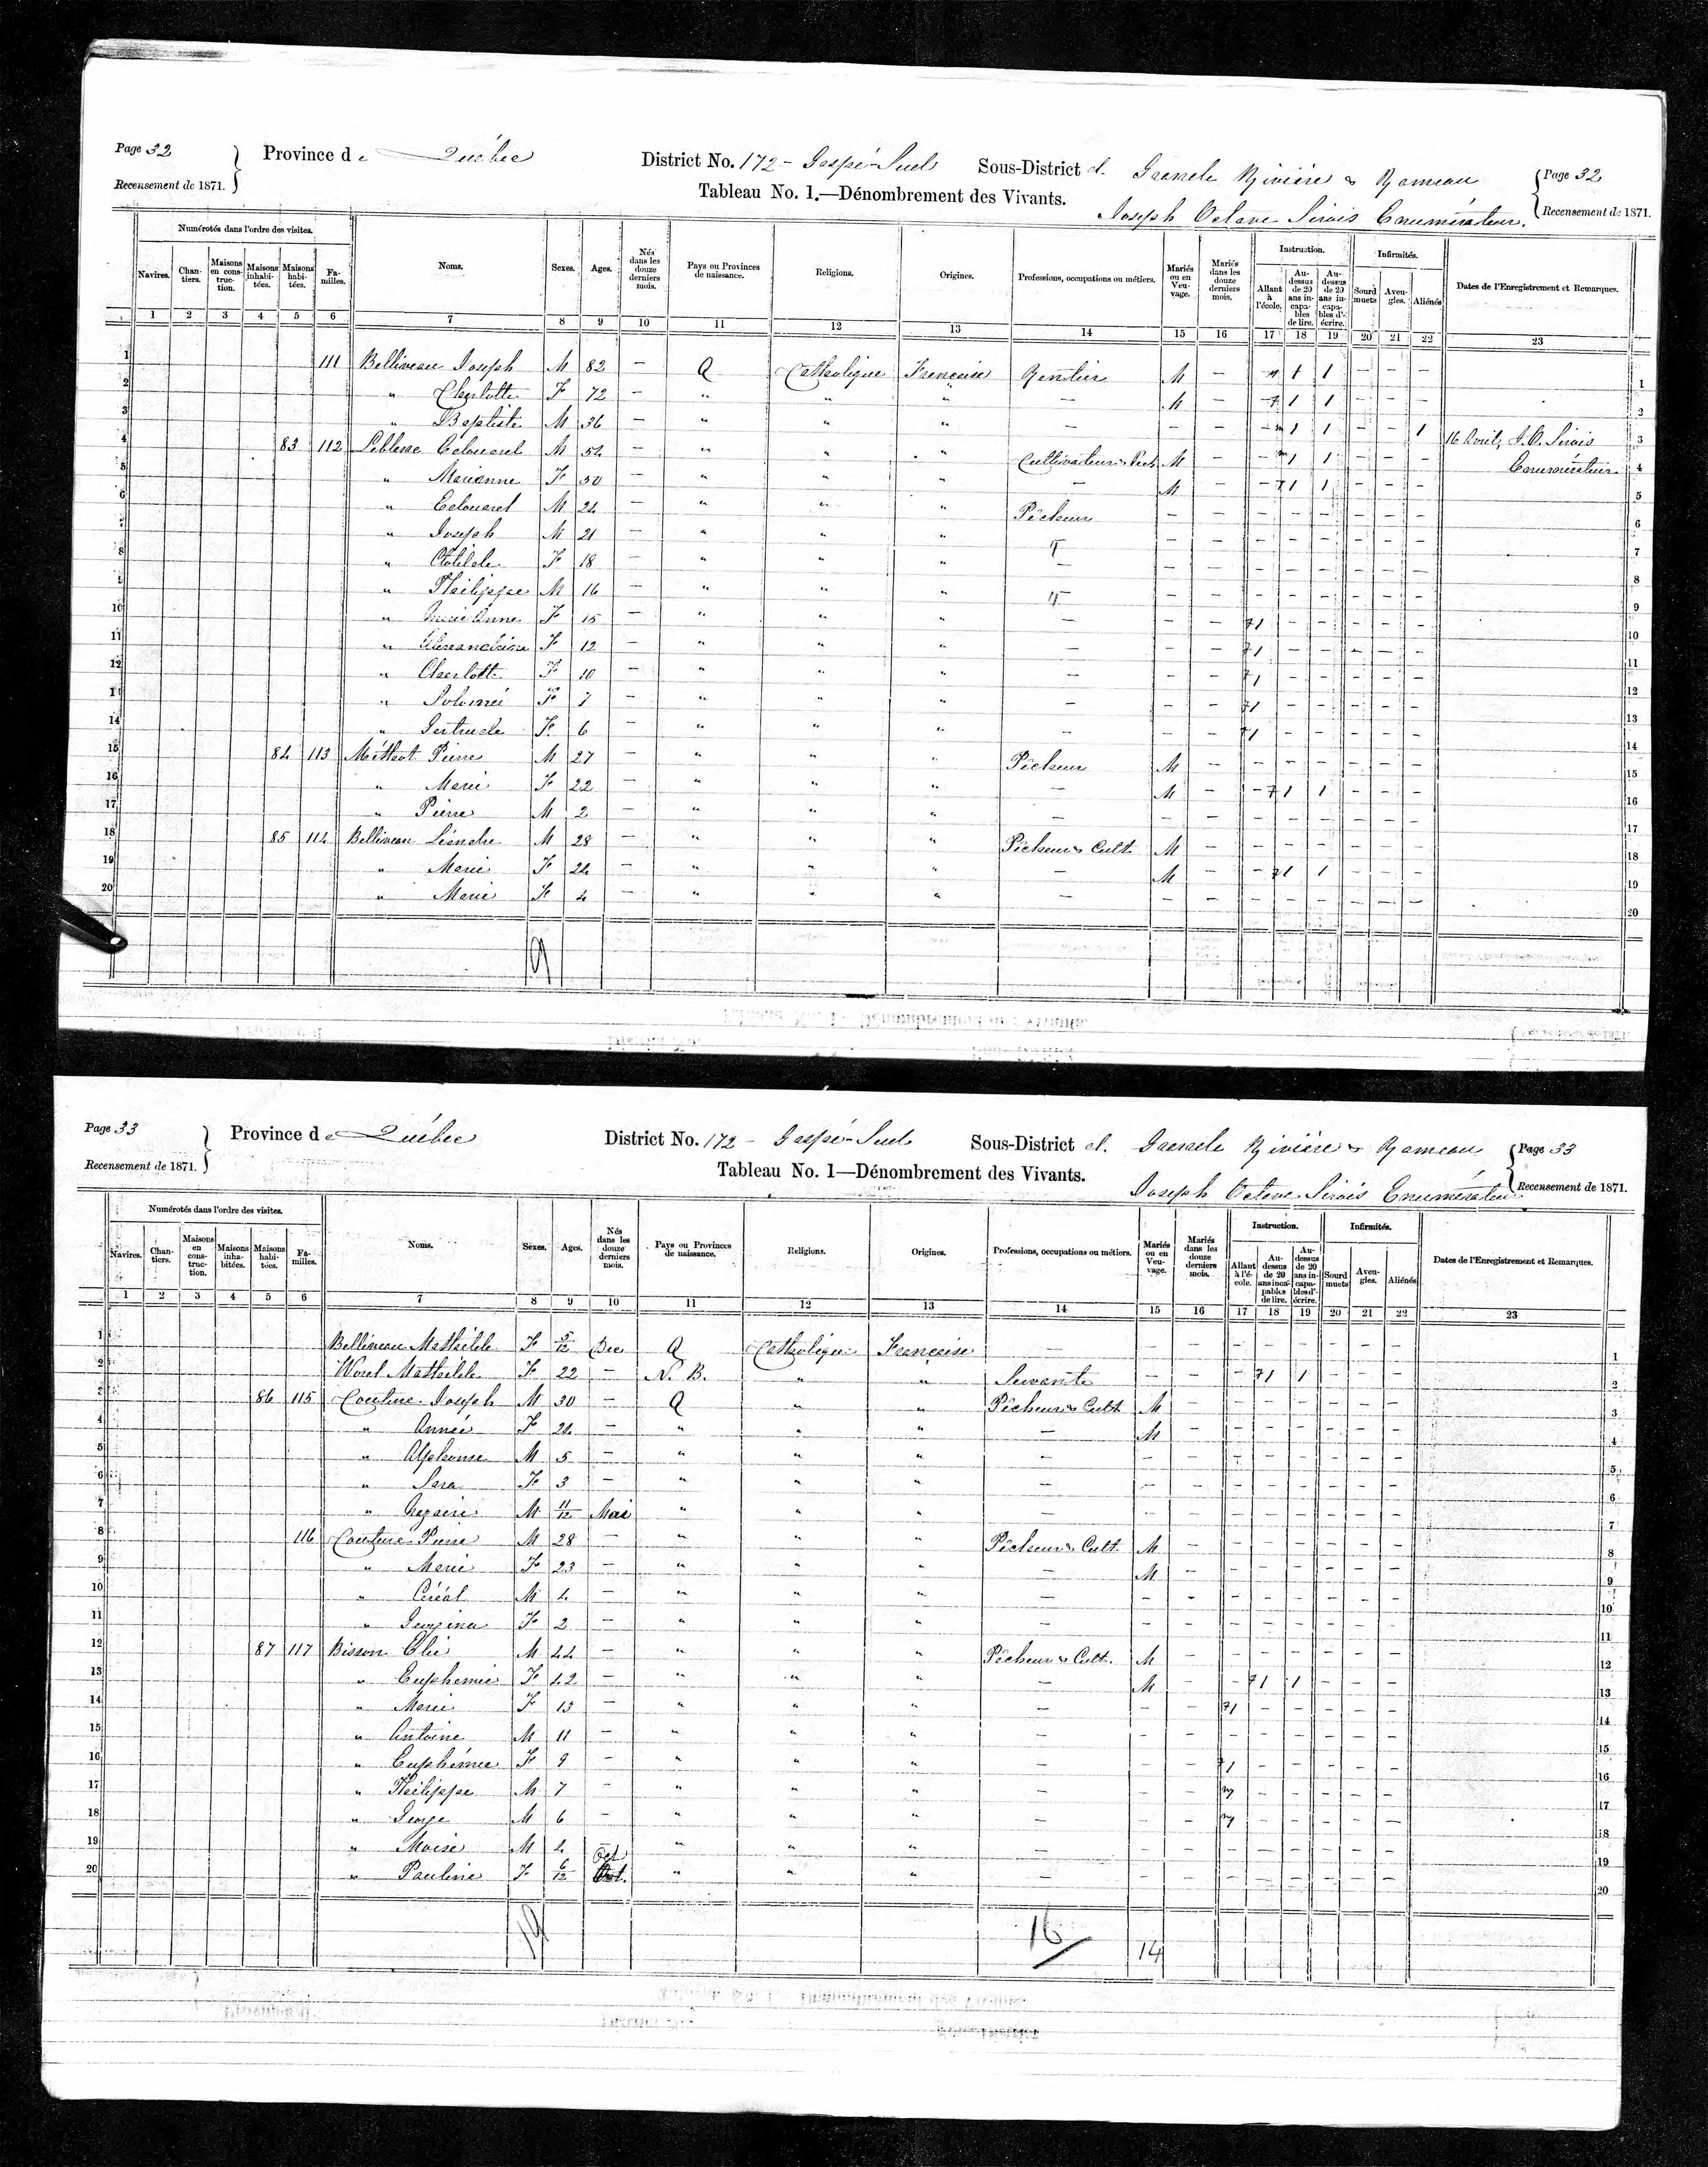 Page 32
Recensement de 1871.
Province de Québec
District No. 172 - Gaspé-Sud Sous-District d. Grande Rivière & Rameau
Page 32
Recensement de 1871.
Tableau No. 1.—Dénombrement des Vivants.
Joseph Octave Sirois Enumérateur.
Numérotés dans l'ordre des visites.
Navires. Chantiers. Maisons en construction. Maisons inhabitées. Maisons habitées. Familles. Noms. Sexes. Ages. Nés dans les douze derniers mois. Pays ou Provinces de naissance. Religions. Origines. Professions, occupations ou métiers. Mariés ou en Veuvage. Mariés dans les douze derniers mois. Instruction. Allant à l'école. Au-dessus de 20 ans incapables de lire. Au-dessus de 20 ans incapables d'écrire. Infirmités. Sourd muets Aveugles. Aliénés Dates de l'Enregistrement et Remarques.
1 2 3 4 5 6 7 8 9 10 11 12 13 14 15 16 17 18 19 20 21 22 23
1 111 Belliveau Joseph M 82 — Q Catholique Française Rentier M — 1 1 — — — 1
2 " Charlotte F 72 — " " " — M — 1 1 — — — 2
3 " Baptiste M 36 — " " " — — — 1 1 — — 1 16 Avril, J. O. Sirois 3
4 83 112 Leblanc Edouard M 54 — " " " Cultivateur & Pech. M — 1 1 — — — Enumérateur 4
5 " Marianne F 50 — " " " — M — 1 1 — — — 5
6 " Edouard M 24 — " " " Pêcheur — — — — — — — — 6
7 " Joseph M 21 — " " " " — — — — — — — — 7
8 " Clotilde F 18 — " " " — — — — — — — — — 8
9 " Philippe M 16 — " " " " — — — — — — — — 9
10 " Marie Anne F 15 — " " " — — — 1 — — — — — 10
11 " F 12 — " " " — — — 1 — — — — — 11
12 " Charlotte F 10 — " " " — — — 1 — — — — — 12
13 " Solomée F 7 — " " " — — — 1 — — — — — 13
14 " Gertrude F 6 — " " " — — — 1 — — — — — 14
15 84 113 Méthot Pierre M 27 — " " " Pêcheur M — — — — — — — 15
16 " Marie F 22 — " " " — M — — 1 1 — — — 16
17 " Pierre M 2 — " " " — — — — — — — — — 17
18 85 114 Belliveau Léandre M 28 — " " " Pêcheur & Cult. M — — — — — — — 18
19 " Marie F 24 — " " " — M — — 1 1 — — — 19
20 " Marie F 4 — " " " — — — — — — — — — 20
Page 33
Recensement de 1871.
Province de Québec
District No. 172 - Gaspé-Sud Sous-District d. Grande Rivière & Rameau
Page 33
Recensement de 1871.
Tableau No. 1—Dénombrement des Vivants.
Joseph Octave Sirois Enumérateur
Numérotés dans l'ordre des visites.
Navires. Chantiers. Maisons en construction. Maisons inhabitées. Maisons habitées. Familles. Noms. Sexes. Ages. Nés dans les douze derniers mois. Pays ou Provinces de naissance. Religions. Origines. Professions, occupations ou métiers. Mariés ou en Veuvage. Mariés dans les douze derniers mois. Instruction. Allant à l'école. Au-dessus de 20 ans incapables de lire. Au-dessus de 20 ans incapables d'écrire. Infirmités. Sourd muets Aveugles. Aliénés Dates de l'Enregistrement et Remarques.
1 2 3 4 5 6 7 8 9 10 11 12 13 14 15 16 17 18 19 20 21 22 23
1 Belliveau Mathilde F 5/12 Dec Q Catholique Française — — — — — — — — — 1
2 Mathilde F 22 — N. B. " " Servante — — — 1 1 — — — 2
3 86 115 Couture Joseph M 30 — Q " " Pêcheur & Cult M — — — — — — — 3
4 " Année F 24 — " " " — M — — — — — — — 4
5 " Alphonse M 5 — " " " — — — — — — — — — 5
6 " Sara F 3 — " " " — — — — — — — — — 6
7 " M 11/12 Mai " " " — — — — — — — — — 7
8 116 Couture Pierre M 28 — " " " Pêcheur & Cult. M — — — — — — — 8
9 " Marie F 23 — " " " — M — — — — — — — 9
10 " M 4 — " " " — — — — — — — — — 10
11 " Georgina F 2 — " " " — — — — — — — — — 11
12 87 117 Bisson Elie M 44 — " " " Pêcheur & Cult. M — — — — — — — 12
13 " Euphemie F 42 — " " " — M — — 1 1 — — — 13
14 " Marie F 13 — " " " — — — 1 — — — — — 14
15 " Antoine M 11 — " " " — — — — — — — — — 15
16 " Euphémie F 9 — " " " — — — 1 — — — — — 16
17 " Philippe M 7 — " " " — — — — — — — — 17
18 " George M 6 — " " " — — — — — — — — 18
19 " Moise M 4 — " " " — — — — — — — — — 19
20 " Pauline F 6/12 Oct " " " — — — — — — — — — 20
16
14